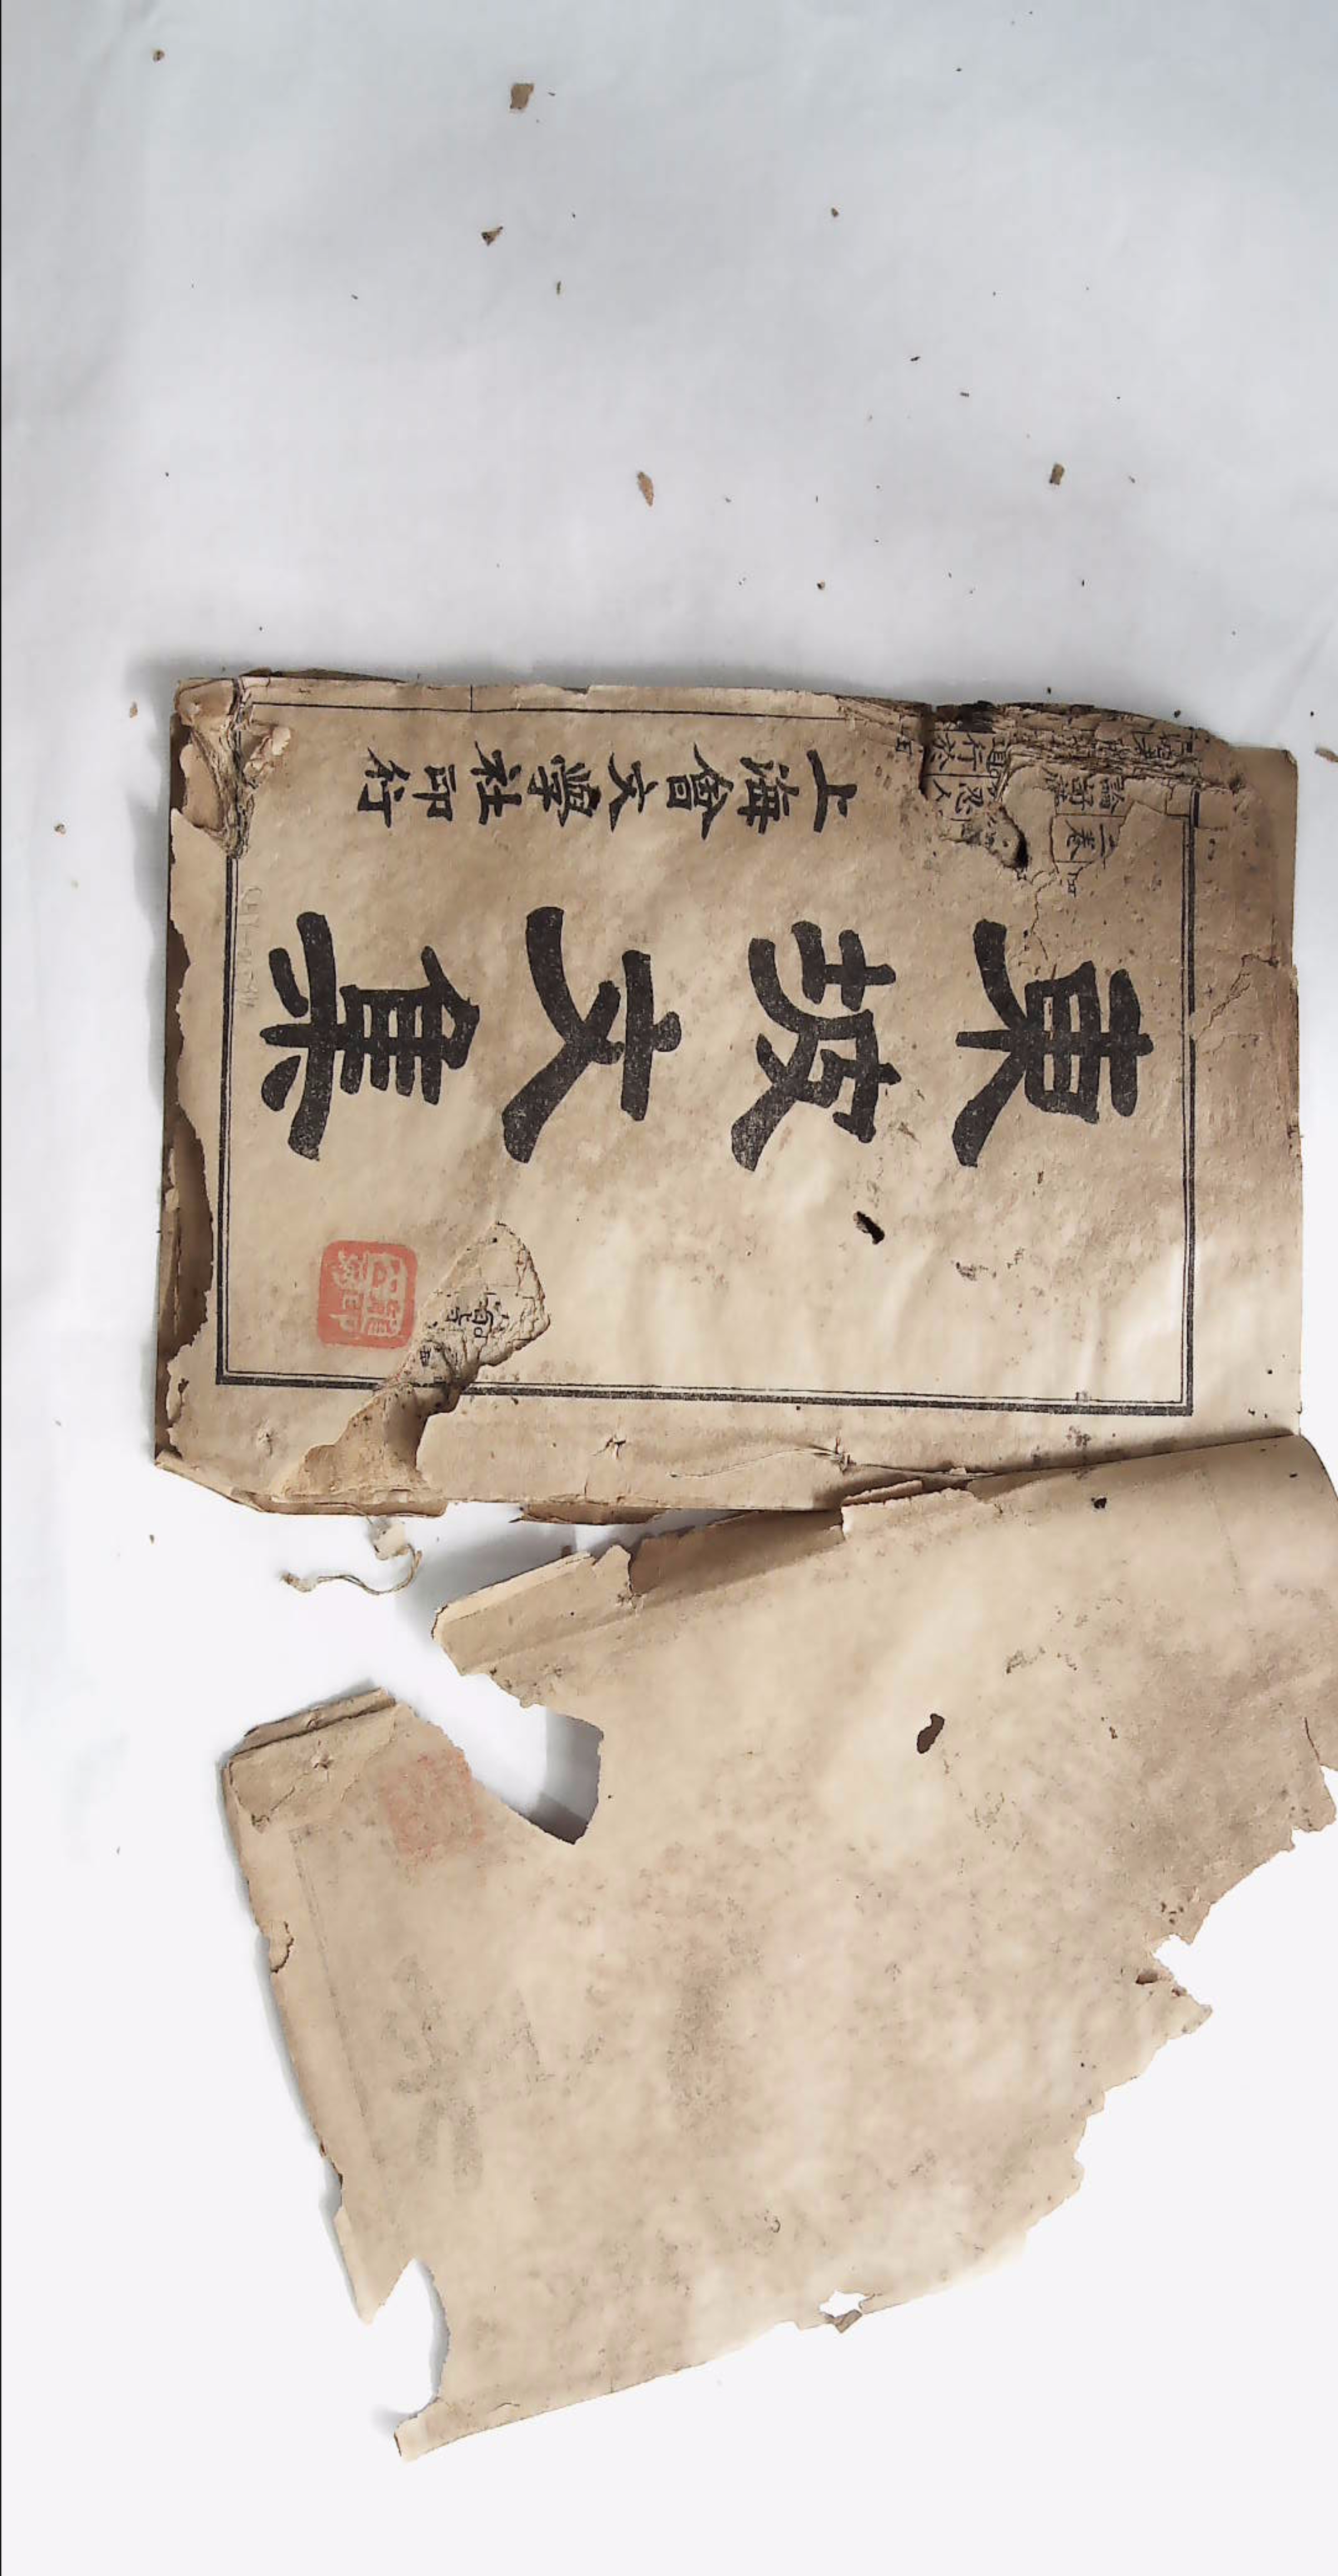 東坡文集
上海會文學社印行